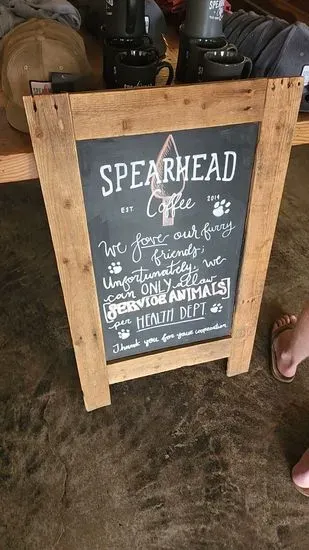 SPEARHEAD
EST. Coffee 2014
We love our furry
friends;
Unfortunately, we
can ONLY allow
SERVICE ANIMALS
per HEALTH DEPT.
Thank you for your cooperation